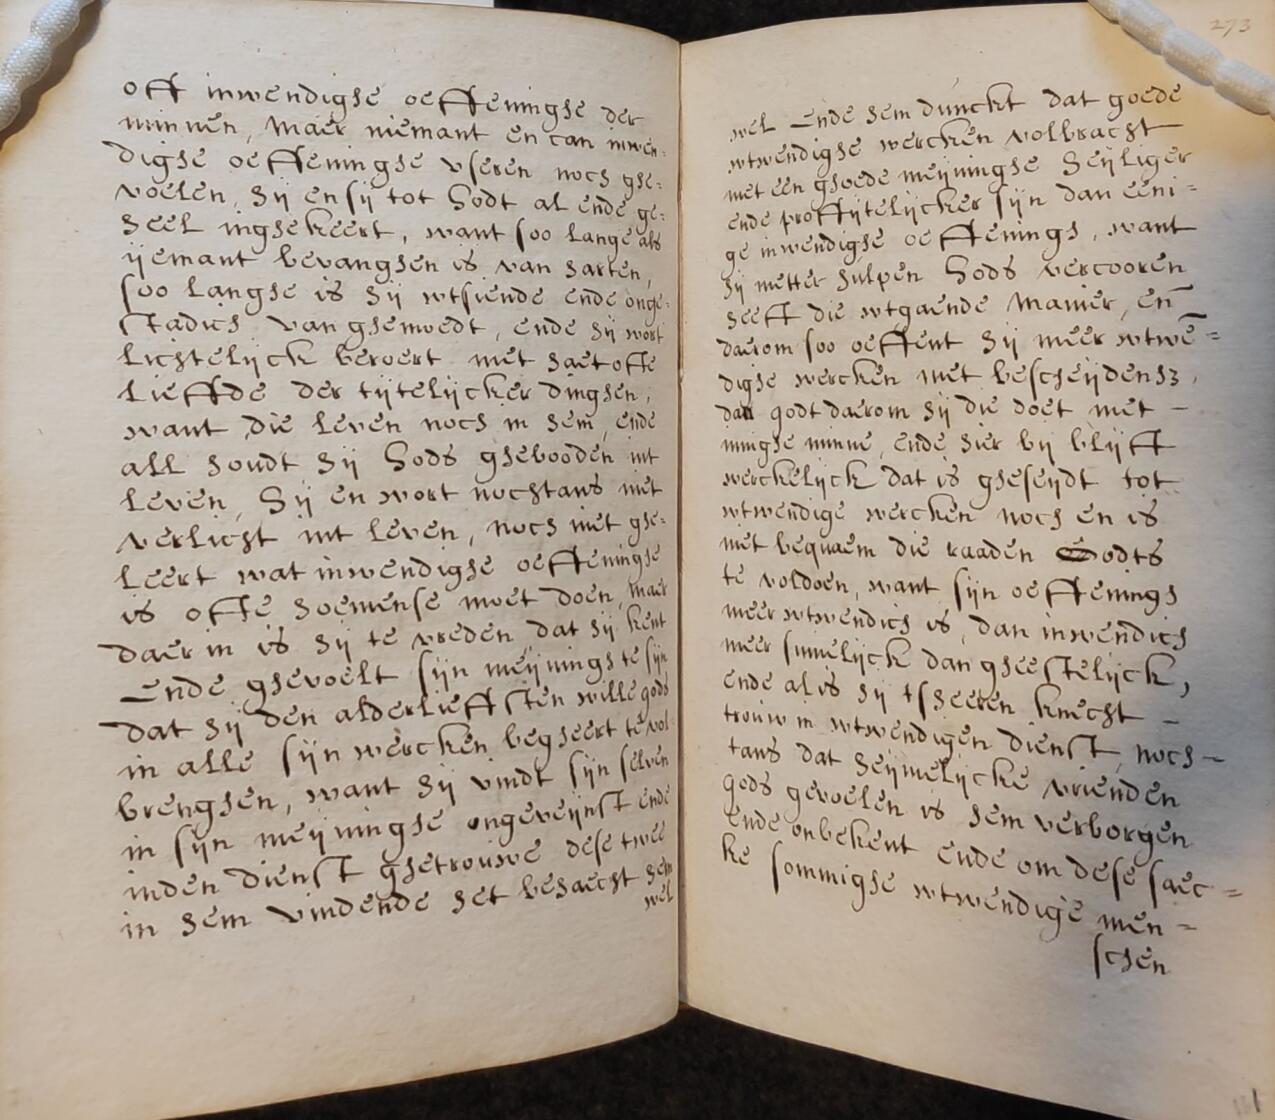 off inwendighe oeffeninghe der
minnen, maer niemant en can inwen-
dighe oeffeninghe vseren noch ghe-
voelen, hij en sij tot Godt al ende ge-
heel inghekeert, want soo lange als
ijemant bevanghen is van harten,
soo langhe is hij wtsiende ende onge-
stadich van ghemoedt, ende hij wort
lichtelijck beroert met haet offe
Lieffde der tijtelijcker dinghen,
want die leven noch in hem, ende
all houdt hij Gods ghebooden int
leven, Hij en wort nochtans niet
verlicht int leven, noch niet ghe-
leert wat inwendighe oeffeninghe
is offe hoemense moet doen, maer
daer in is hij te vreden dat hij kent
Ende ghevoelt sijn meijnings te sijn
dat hij den alderlieffsten wille gods
in alle sijn wercken begheert te vol-
brenghen, want hij vindt sijn selven
in sijn meijninghe ongeveijnst ende
inden dienst ghetrouwe dese twee
in hem vindende het behaecht hem
wel
273
wel Ende hem dunckt dat goede
wtwendighe wercken volbracht
met een ghoede meijninghe Heijliger
ende proffijtelijcker sijn dan eeni-
ge inwendighe oeffenings, want
hij metter hulpen Gods vercooren
heeft die wtgaende manier, en̄
daerom soo oeffent hij meer wtwē-
dighe wercken met bescheijdenh3,
dan godt daerom hij die doet met -
ninghe minne, ende hier bij blijft
werckelijck dat is gheseijdt tot
wtwendige wercken noch en is
niet bequaem die raaden Godts
te voldoen, want sijn oeffenings
meer wtwendich is, dan inwendich
meer sinnelijck dan gheestelijck,
ende al is hij tsheeren knecht -
trouw in wtwendigen dienst, noch-
tans dat heijmelijcke vrienden
gods gevoelen is hem verborgen
ende onbekent ende om dese saec-
ke sommighe wtwendige men-
schen